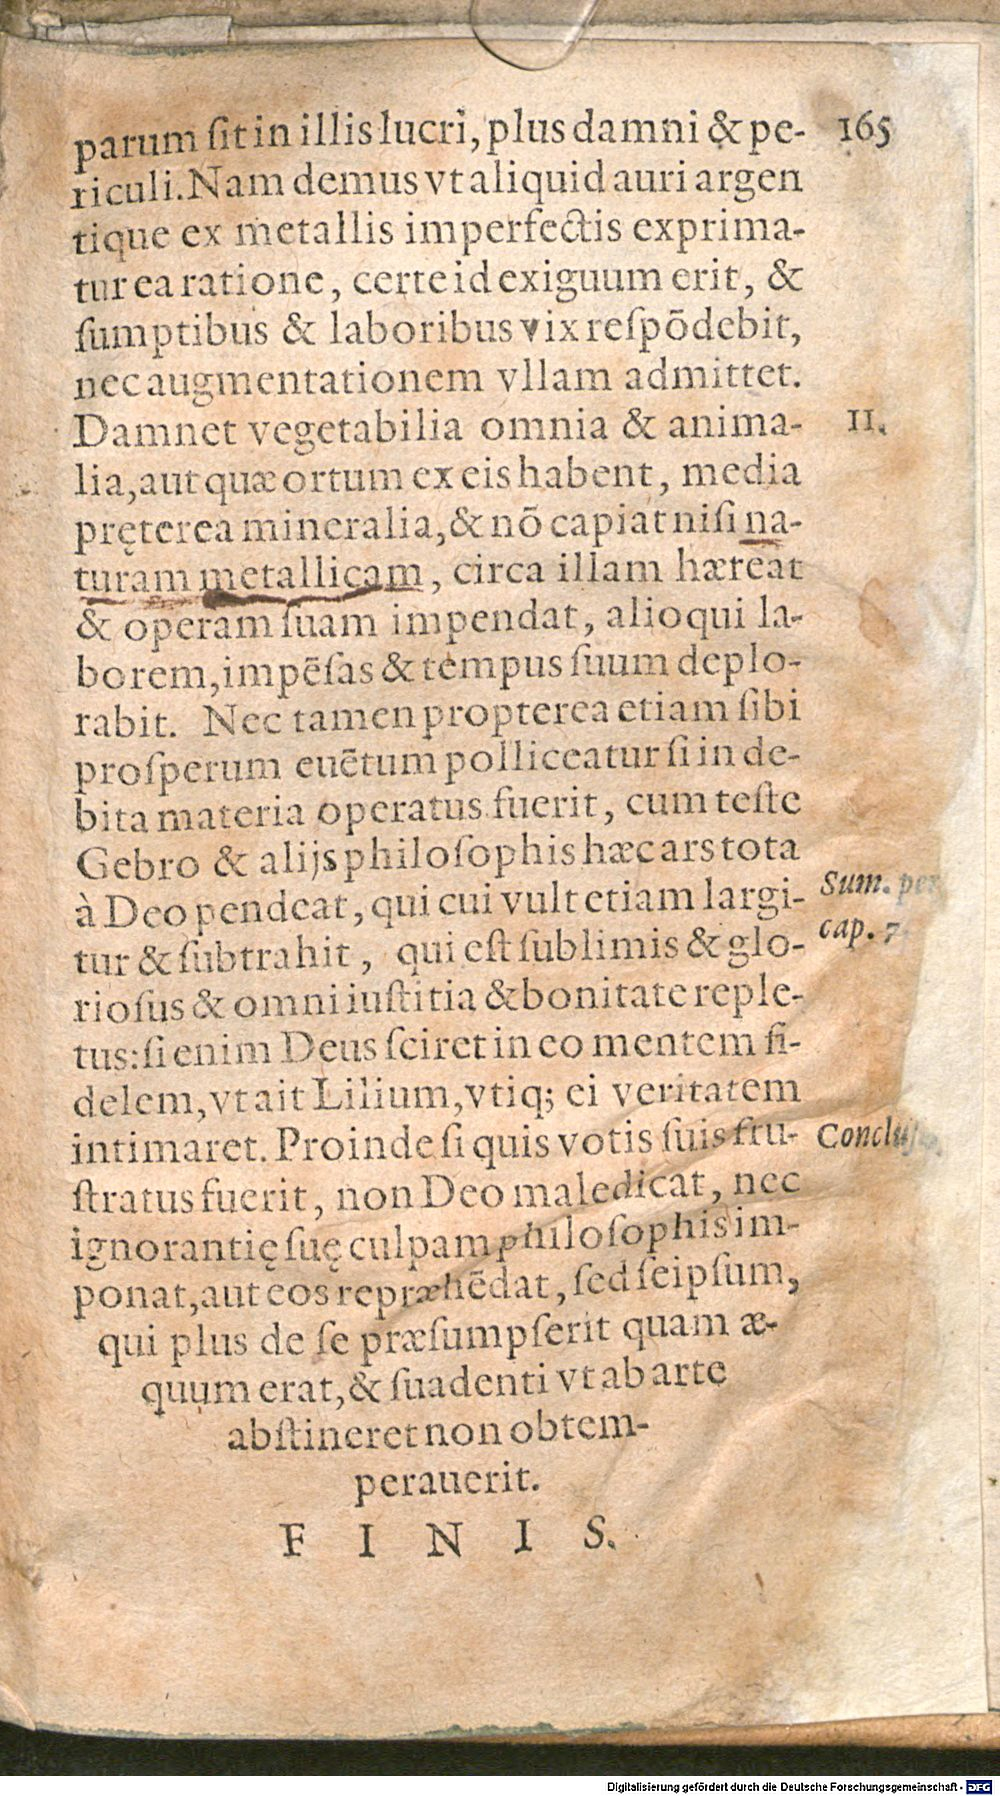 parum ſit in illis lucri, plus damni & pe- 165
riculi. Nam demus vt aliquid auri argen
tique ex metallis imperfectis exprima-
tur ea ratione, certe id exiguum erit, &
ſumptibus & laboribus vix reſpōdebit,
nec augmentationem vllam admittet.
Damnet vegetabilia omnia & anima- II.
lia, aut quæ ortum ex eis habent, media
pręterea mineralia, & nō capiat niſi na-
turam metallicam, circa illam hæreat
& operam ſuam impendat, alioqui la-
borem, impēſas & tempus ſuum deplo-
rabit. Nec tamen propterea etiam ſibi
proſperum euētum polliceatur ſi in de-
bita materia operatus fuerit, cum teſte
Gebro & alijs philoſophis hæc ars tota
à Deo pendeat, qui cui vult etiam largi- Sum. per
tur & ſubtrahit, qui eſt ſublimis & glo- cap. 7.
rioſus & omni iuſtitia & bonitate reple-
tus: ſi enim Deus ſciret in eo mentem fi-
delem, vt ait Lilium, vtiq; ei veritatem
intimaret. Proinde ſi quis votis ſuis fru-
ſtratus fuerit, non Deo maledicat, nec
ignorantię ſuę culpam philoſophis im-
ponat, aut eos repræhēdat, ſed ſeipſum,
qui plus de ſe præſumpſerit quam æ-
quum erat, & ſuadenti vt ab arte
abſtineret non obtem-
perauerit.
F I N I S.
Digitalisierung gefördert durch die Deutsche Forschungsgemeinschaft - DFG